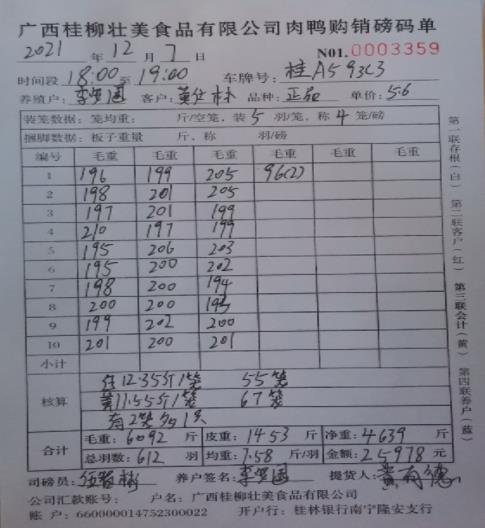 广西桂柳壮美食品有限公司肉鸭购销磅码单
2021 年 12 月 7 日 NO1.0003359
时间段 18:00 至 19:00 车牌号: 桂A593C3
养殖户: 客户: 品种: 正品 单价: 5.6
装笼数据: 笼均重: 斤/空笼, 装 5 羽/笼, 称 4 笼/磅
捆脚数据: 板子重量 斤、称 羽/磅
编号 毛重 毛重 毛重 毛重 毛重 毛重
1 196 199 205 96(2)
2 198 201 205
3 197 201 199
4 210 197 199
5 195 206 203
6 195 200 202
7 198 200 194
8 200 200 195
9 199 202 200
10 201 200 201
小计
核算 12.35斤/笼 55笼
11.55斤/笼 67笼
有2笼多1只
合计 毛重: 6092 斤 皮重: 1453 斤 净重: 4639 斤
总羽数: 612 羽 均重: 7.58 斤/羽 金额: 25978 元
司磅员: 养户签名: 提货人: 黄有德
公司汇款账号: 户名: 广西桂柳壮美食品有限公司
账 户: 660000014752300022 开户行: 桂林银行南宁隆安支行
第一联存根(白) 第二联客户(红) 第三联会计(黄) 第四联养户(蓝)